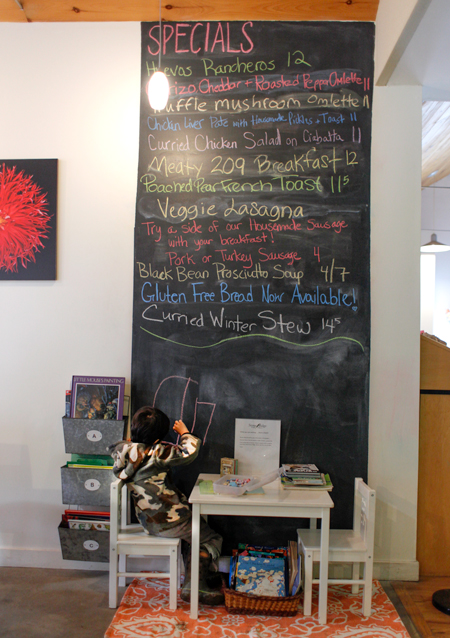 SPECIALS
Huevos Rancheros 12
Cheddar + Roasted Pepper Omlette 11
Truffle mushroom Omlette 11
Chicken Liver Pate with Housemade Pickles + Toast 11
Curried Chicken Salad on Ciabatta 11
Meaty 209 Breakfast 12
Poached Pear French Toast 11⁵
Veggie Lasagna
Try a side of our Housemade Sausage
with your breakfast!
Pork or Turkey Sausage 4
Black Bean Prosciutto Soup 4/7
Gluten Free Bread Now Available!
Curried Winter Stew 14⁵
A
B
C